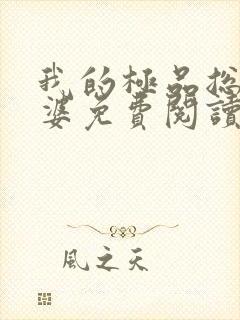 我的極品総
婆免費閱讀
風之天